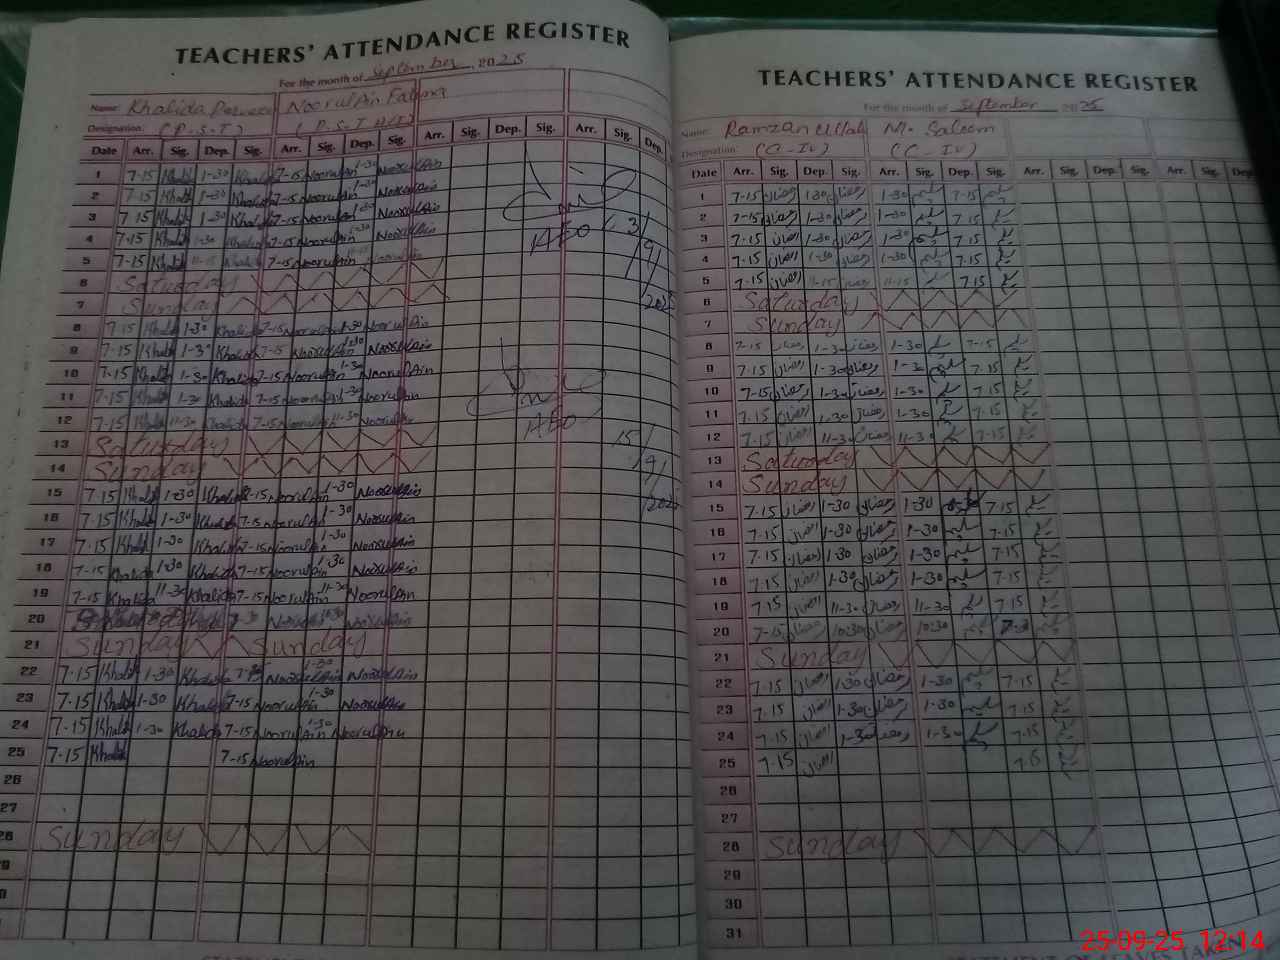 TEACHERS' ATTENDANCE REGISTER
For the month of September 2025
Name: Khalida Parveen Noorulain Fatima
Designation: (P.S.T) (P.S.T)
Date Arr. Sig. Dep. Sig. Arr. Sig. Dep. Sig. Arr. Sig. Dep. Sig. Arr. Sig. Dep.
1 7-15 Khalid 1-30 Khalid 7-15 Noorulain 1-30 Noorulain
2 7-15 Khalid 1-30 Khalid 7-15 Noorulain 1-30 Noorulain
3 7-15 Khalid 1-30 Khalid 7-15 Noorulain 1-30 Noorulain
4 7-15 Khalid 1-30 Khalid 7-15 Noorulain 1-30 Noorulain
5 7-15 Khalid 11-15 Khalid 7-15 Noorulain Noorulain
6 Saturday
7 Sunday
8 7-15 Khalid 1-30 Khalid 7-15 Noorulain 1-30 Noorulain
9 7-15 Khalid 1-30 Khalid 7-15 Noorulain 1-30 Noorulain
10 7-15 Khalid 1-30 Khalid 7-15 Noorulain 1-30 Noorulain
11 7-15 Khalid 1-30 Khalid 7-15 Noorulain 1-30 Noorulain
12 7-15 Khalid 11-30 Khalida 7-15 Noorulain 11-30 Noorulain
13 Saturday
14 Sunday
15 7-15 Khalid 1-30 Khalid 7-15 Noorulain 1-30 Noorulain
16 7-15 Khalid 1-30 Khalid 7-15 Noorulain 1-30 Noorulain
17 7-15 Khalid 1-30 Khalid 7-15 Noorulain 1-30 Noorulain
18 7-15 Khalida 1-30 Khalida 7-15 Noorulain 1-30 Noorulain
19 7-15 Khalida 11-30 Khalida 7-15 Noorulain 11-30 Noorulain
20 Noorulain
21 Sunday Sunday
22 7-15 Khalid 1-30 Khalida 7-15 Noorulain 1-30 Noorulain
23 7-15 Khalid 1-30 Khalid 7-15 Noorulain 1-30 Noorulain
24 7-15 Khalid 1-30 Khalid 7-15 Noorulain 1-30 Noorulain
25 7-15 Khalid 7-15 Noorulain
26
27
28 Sunday
29
AEO 3/9/2025
AEO 15/9/2025
TEACHERS' ATTENDANCE REGISTER
For the month of September 2025
Name: Ramzan Ullah M. Saleem
Designation: (C-IV) (C-IV)
Date Arr. Sig. Dep. Sig. Arr. Sig. Dep. Sig. Arr. Sig. Dep. Sig. Arr. Sig. Dep.
1 7-15 رمضان 1-30 رمضان 1-30 سلیم 7-15 سلیم
2 7-15 رمضان 1-30 رمضان 1-30 سلیم 7-15 سلیم
3 7-15 رمضان 1-30 رمضان 1-30 سلیم 7-15 سلیم
4 7-15 رمضان 1-30 رمضان 1-30 سلیم 7-15 سلیم
5 7-15 رمضان 11-15 رمضان 11-15 سلیم 7-15 سلیم
6 Saturday
7 Sunday
8 7-15 رمضان 1-30 رمضان 1-30 سلیم 7-15 سلیم
9 7-15 رمضان 1-30 رمضان 1-30 سلیم 7-15 سلیم
10 7-15 رمضان 1-30 رمضان 1-30 سلیم 7-15 سلیم
11 7-15 رمضان 1-30 رمضان 1-30 سلیم 7-15 سلیم
12 7-15 رمضان 11-30 رمضان 11-30 سلیم 7-15 سلیم
13 Saturday
14 Sunday
15 7-15 رمضان 1-30 رمضان 1-30 7-15 سلیم
16 7-15 رمضان 1-30 رمضان 1-30 سلیم 7-15 سلیم
17 7-15 رمضان 1-30 رمضان 1-30 سلیم 7-15 سلیم
18 7-15 رمضان 1-30 رمضان 1-30 سلیم 7-15 سلیم
19 7-15 رمضان 11-30 رمضان 11-30 سلیم 7-15 سلیم
20 7-15 رمضان 10-30 رمضان 10-30 سلیم سلیم
21 Sunday
22 7-15 رمضان 1-30 رمضان 1-30 سلیم 7-15 سلیم
23 7-15 رمضان 1-30 رمضان 1-30 سلیم 7-15 سلیم
24 7-15 رمضان 1-30 رمضان 1-30 سلیم 7-15 سلیم
25 7-15 رمضان سلیم
26
27
28 Sunday
29
30
31
25-09-25 12:14